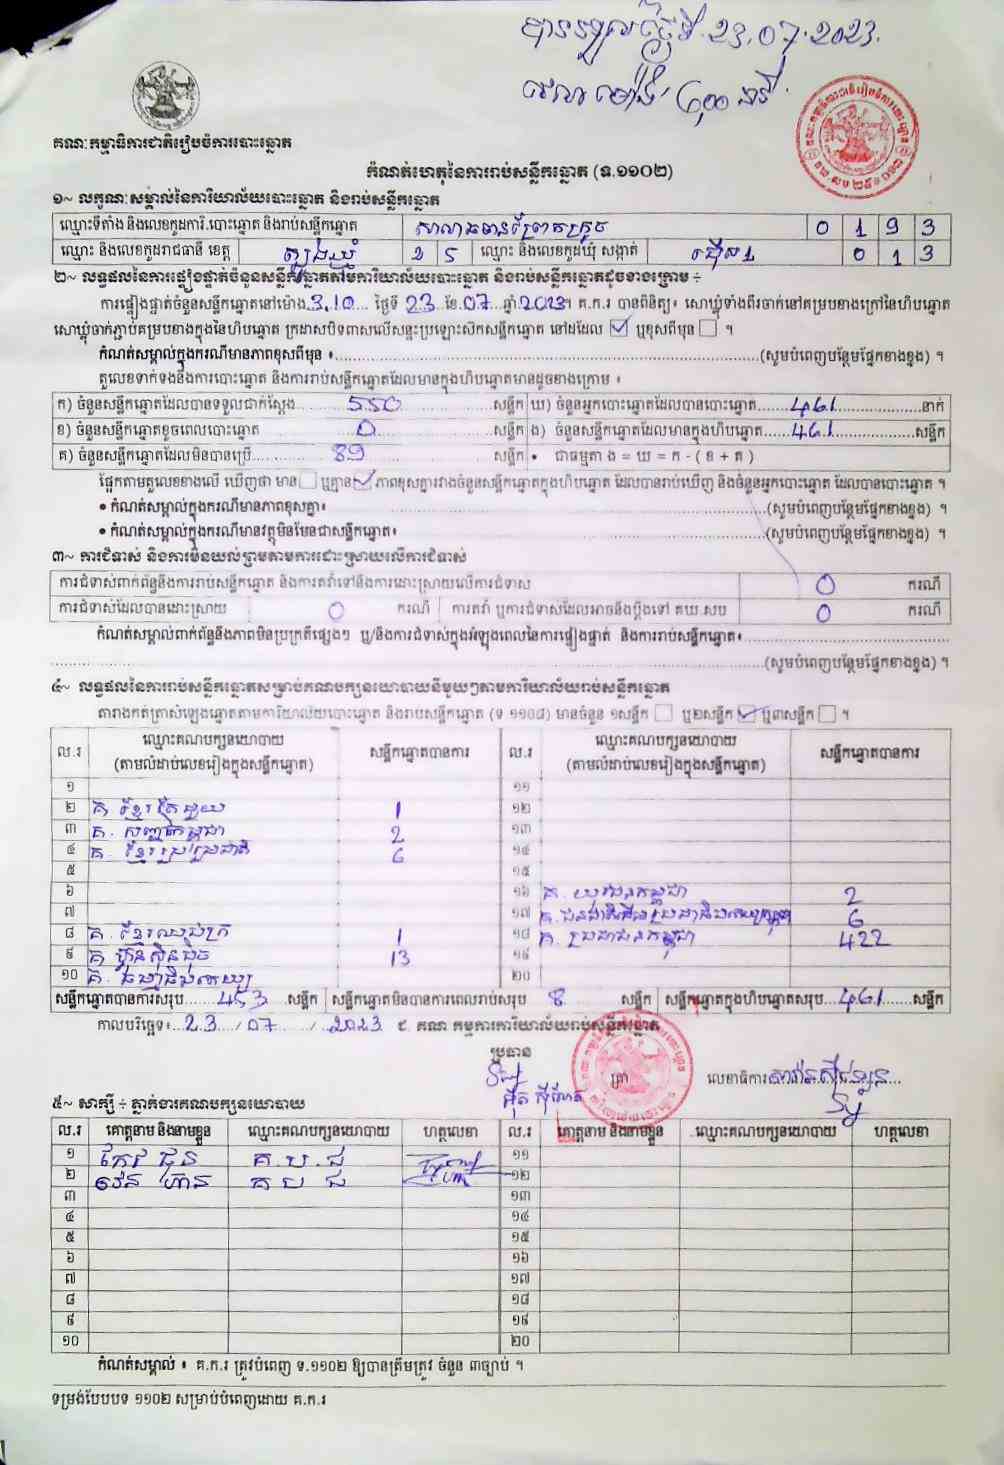 បានទទួលថ្ងៃទី 23.07.2023
គណៈកម្មាធិការជាតិរៀបចំការបោះឆ្នោត
កំណត់ហេតុនៃការរាប់សន្លឹកឆ្នោត (ទ.១១០២)
១~ លក្ខណៈសម្គាល់នៃការិយាល័យបោះឆ្នោត និងរាប់សន្លឹកឆ្នោត
ឈ្មោះទីតាំង និងលេខកូដការិ.បោះឆ្នោត និងរាប់សន្លឹកឆ្នោត 0 1 9 3
ឈ្មោះ និងលេខកូដរាជធានី ខេត្ត ត្បូងឃ្មុំ 2 5 ឈ្មោះ និងលេខកូដឃុំ សង្កាត់ 0 1 3
២~ លទ្ធផលនៃការផ្ទៀងផ្ទាត់ចំនួនសន្លឹកឆ្នោតតាមការិយាល័យបោះឆ្នោត និងរាប់សន្លឹកឆ្នោតដូចខាងក្រោម ÷
ការផ្ទៀងផ្ទាត់ចំនួនសន្លឹកឆ្នោតនៅម៉ោង 3.10 ថ្ងៃទី 23 ខែ 07 ឆ្នាំ 2023។ គ.ក.រ បានពិនិត្យ៖ សោឃ្លុំទាំងពីរចាក់នៅគម្របខាងក្រៅនៃហិបឆ្នោត
សោឃ្លុំចាក់ភ្ជាប់គម្របខាងក្នុងនៃហិបឆ្នោត ក្រដាសបិទពាសលើសន្ទះប្រឡោះសិកសន្លឹកឆ្នោត នៅដដែល ☑ ឬខុសពីមុន ☐ ។
កំណត់សម្គាល់ក្នុងករណីមានភាពខុសពីមុន ៖ (សូមបំពេញបន្ថែមផ្នែកខាងខ្នង) ។
តួលេខទាក់ទងនឹងការបោះឆ្នោត និងការរាប់សន្លឹកឆ្នោតដែលមានក្នុងហិបឆ្នោតមានដូចខាងក្រោម ៖
ក) ចំនួនសន្លឹកឆ្នោតដែលបានទទួលជាក់ស្តែង 550 សន្លឹក ឃ) ចំនួនអ្នកបោះឆ្នោតដែលបានបោះឆ្នោត 461 នាក់
ខ) ចំនួនសន្លឹកឆ្នោតខូចពេលបោះឆ្នោត 0 សន្លឹក ង) ចំនួនសន្លឹកឆ្នោតដែលមានក្នុងហិបឆ្នោត 461 សន្លឹក
គ) ចំនួនសន្លឹកឆ្នោតដែលមិនបានប្រើ 89 សន្លឹក • ជាធម្មតា ង = ឃ = ក - ( ខ + គ )
ផ្អែកតាមតួលេខខាងលើ ឃើញថា មាន ☐ ឬគ្មាន ☑ ភាពខុសគ្នារវាងចំនួនសន្លឹកឆ្នោតក្នុងហិបឆ្នោត ដែលបានរាប់ឃើញ និងចំនួនអ្នកបោះឆ្នោត ដែលបានបោះឆ្នោត ។
• កំណត់សម្គាល់ក្នុងករណីមានភាពខុសគ្នា៖ (សូមបំពេញបន្ថែមផ្នែកខាងខ្នង) ។
• កំណត់សម្គាល់ក្នុងករណីមានវត្ថុមិនមែនជាសន្លឹកឆ្នោត៖ (សូមបំពេញបន្ថែមផ្នែកខាងខ្នង) ។
៣~ ការជំទាស់ និងការមិនយល់ព្រមតាមការដោះស្រាយលើការជំទាស់
ការជំទាស់ពាក់ព័ន្ធនឹងការរាប់សន្លឹកឆ្នោត និងការតវ៉ាទៅនឹងការដោះស្រាយលើការជំទាស់ 0 ករណី
ការជំទាស់ដែលបានដោះស្រាយ 0 ករណី ការតវ៉ា ឬការជំទាស់ដែលអាចនឹងប្តឹងទៅ គឃ.សប 0 ករណី
កំណត់សម្គាល់ពាក់ព័ន្ធនឹងភាពមិនប្រក្រតីផ្សេងៗ ឬ/និងការជំទាស់ក្នុងអំឡុងពេលនៃការផ្ទៀងផ្ទាត់ និងការរាប់សន្លឹកឆ្នោត៖
(សូមបំពេញបន្ថែមផ្នែកខាងខ្នង) ។
៤~ លទ្ធផលនៃការរាប់សន្លឹកឆ្នោតសម្រាប់គណបក្សនយោបាយនីមួយៗតាមការិយាល័យរាប់សន្លឹកឆ្នោត
តារាងកត់ត្រាសំឡេងឆ្នោតតាមការិយាល័យបោះឆ្នោត និងរាប់សន្លឹកឆ្នោត (ទ ១១០៨) មានចំនួន ១សន្លឹក ☐ ឬ២សន្លឹក ☑ ឬ៣សន្លឹក ☐ ។
ល.រ ឈ្មោះគណបក្សនយោបាយ (តាមលំដាប់លេខរៀងក្នុងសន្លឹកឆ្នោត) សន្លឹកឆ្នោតបានការ ល.រ ឈ្មោះគណបក្សនយោបាយ (តាមលំដាប់លេខរៀងក្នុងសន្លឹកឆ្នោត) សន្លឹកឆ្នោតបានការ
១ ១១
២ គ. ខ្មែរតែមួយ 1 ១២
៣ គ. 2 ១៣
៤ គ. 6 ១៤
៥ ១៥
៦ ១៦ គ. យុវជនកម្ពុជា 2
៧ ១៧ គ. 6
៨ គ. 1 ១៨ គ. ប្រជាជនកម្ពុជា 422
៩ គ. ហ៊្វុនស៊ិនប៉ិច 13 ១៩
១០ គ. ២០
សន្លឹកឆ្នោតបានការសរុប 453 សន្លឹក សន្លឹកឆ្នោតមិនបានការពេលរាប់សរុប 8 សន្លឹក សន្លឹកឆ្នោតក្នុងហិបឆ្នោតសរុប 461 សន្លឹក
កាលបរិច្ឆេទ៖ 23 / 07 / 2023 ជ. គណៈកម្មការការិយាល័យរាប់សន្លឹកឆ្នោត
ប្រធាន
ត្រា លេខាធិការ
៥~ សាក្សី ÷ ភ្នាក់ងារគណបក្សនយោបាយ
ល.រ គោត្តនាម និងនាមខ្លួន ឈ្មោះគណបក្សនយោបាយ ហត្ថលេខា ល.រ គោត្តនាម និងនាមខ្លួន ឈ្មោះគណបក្សនយោបាយ ហត្ថលេខា
១ គ.ប.ជ ១១
២ គ ប ជ ១២
៣ ១៣
៤ ១៤
៥ ១៥
៦ ១៦
៧ ១៧
៨ ១៨
៩ ១៩
១០ ២០
កំណត់សម្គាល់ ៖ គ.ក.រ ត្រូវបំពេញ ទ.១១០២ ឱ្យបានត្រឹមត្រូវ ចំនួន ៣ច្បាប់ ។
ទម្រង់បែបបទ ១១០២ សម្រាប់បំពេញដោយ គ.ក.រ